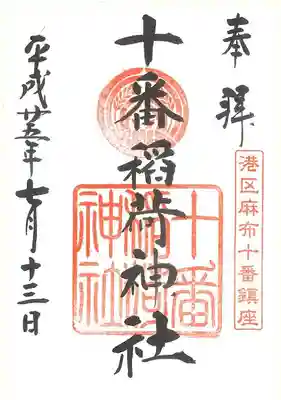 奉拝
港区麻布十番鎮座
十番稲荷神社
十番稲荷神社
平成廿五年七月十三日